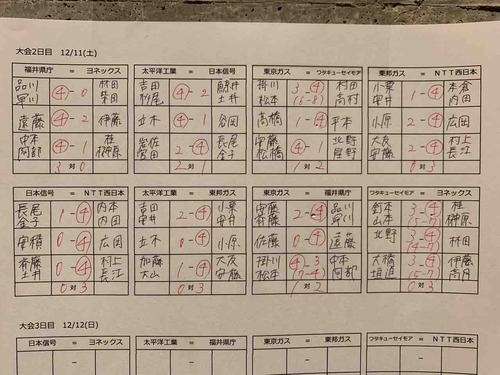 大会2日目 12/11(土)
福井県庁 = ヨネックス
品川 ④-0 林田
早川 柴田
遠藤 ④-2 伊藤
中本 ④-1 桂
阿部 榊原
3 対 0
太平洋工業 = 日本信号
吉田 ④-2
松尾 土井
立木 ④-1 谷岡
2-④ 長尾
金子
2 対 1
東京ガス = ワタキューセイモア
掛川 3-④ 村田
松本 (6-8) 高村
高橋 1-④ 平本
安藤 1-④ 北野
松橋
0 対 3
東邦ガス = NTT西日本
小栗 1-④ 本倉
中井 内田
小原 2-④ 広岡
大友 2-④ 村上
安藤 長江
0 対 3
日本信号 = NTT西日本
長尾 1-④ 内本
金子 内田
安積 0-④ 広岡
斉藤 0-④ 村上
土井 長江
0 対 3
太平洋工業 = 東邦ガス
吉田 2-④ 小栗
中井 安井
立木 0-④ 小原
加藤 1-④ 大友
大山 安藤
0 対 3
東京ガス = 福井県庁
安藤 2-④ 品川
斉藤 早川
佐藤 0-④ 遠藤
掛川 ④-3 中本
松本 (7-4) 阿部
1 対 2
ワタキューセイモア = ヨネックス
鈴木 3-④ 桂
山本 (5-7) 榊原
北野 3-④ 林田
(4-7)
大橋 3-④ 伊藤
垣道 (5-7) 高月
0 対 3
大会3日目 12/12(日)
日本信号 = ヨネックス
太平洋工業 = 福井県庁
東京ガス = 東邦ガス
ワタキューセイモア = NTT西日本
－ － － －